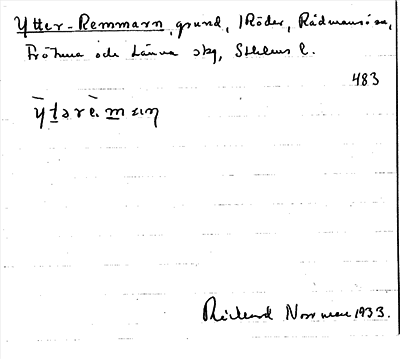 Ytter-Remmarn, grund, Röder, Rådmansö sn,
Fröhna och Länna skg, Sthlms l.
483
Rickard Norrman 1933.